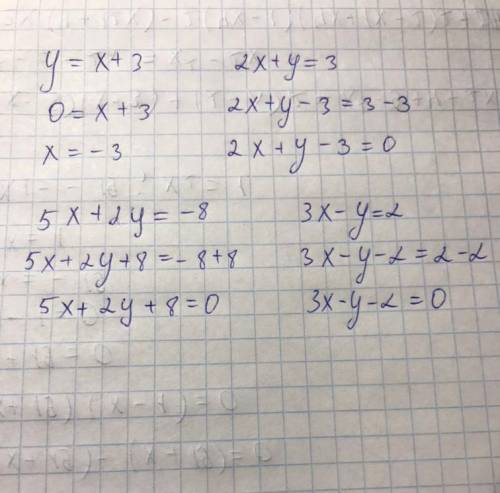 y = x + 3
0 = x + 3
x = - 3
2x + y = 3
2x + y - 3 = 3 - 3
2x + y - 3 = 0
5x + 2y = -8
5x + 2y + 8 = - 8 + 8
5x + 2y + 8 = 0
3x - y = 2
3x - y - 2 = 2 - 2
3x - y - 2 = 0